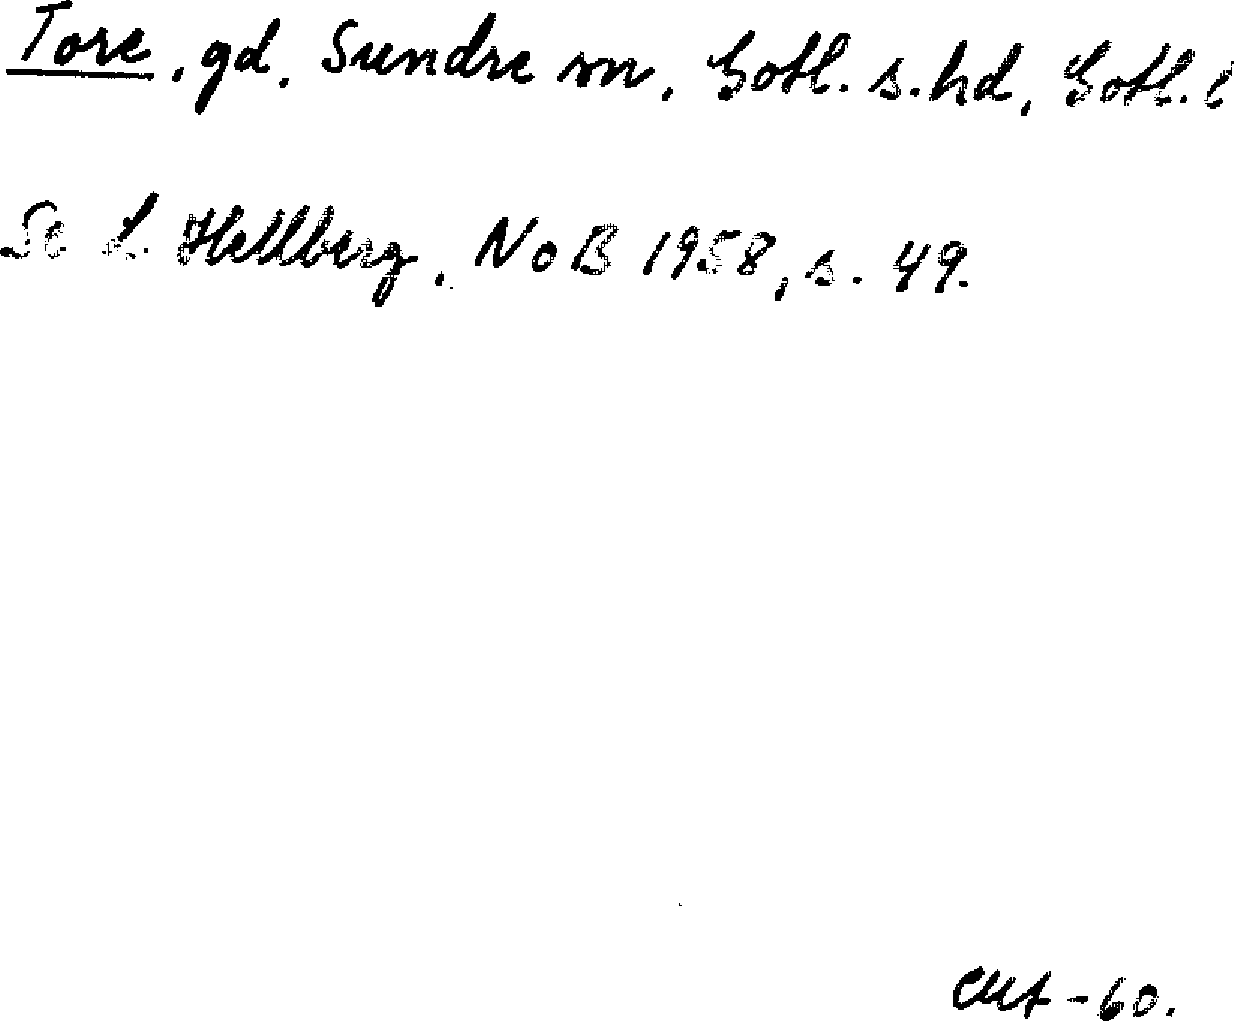 Tore, gd, Sundre sn, Gotl. s. hd, Gotl. l
Se L. Hellberg, NoB 1958, s. 49.
-60.